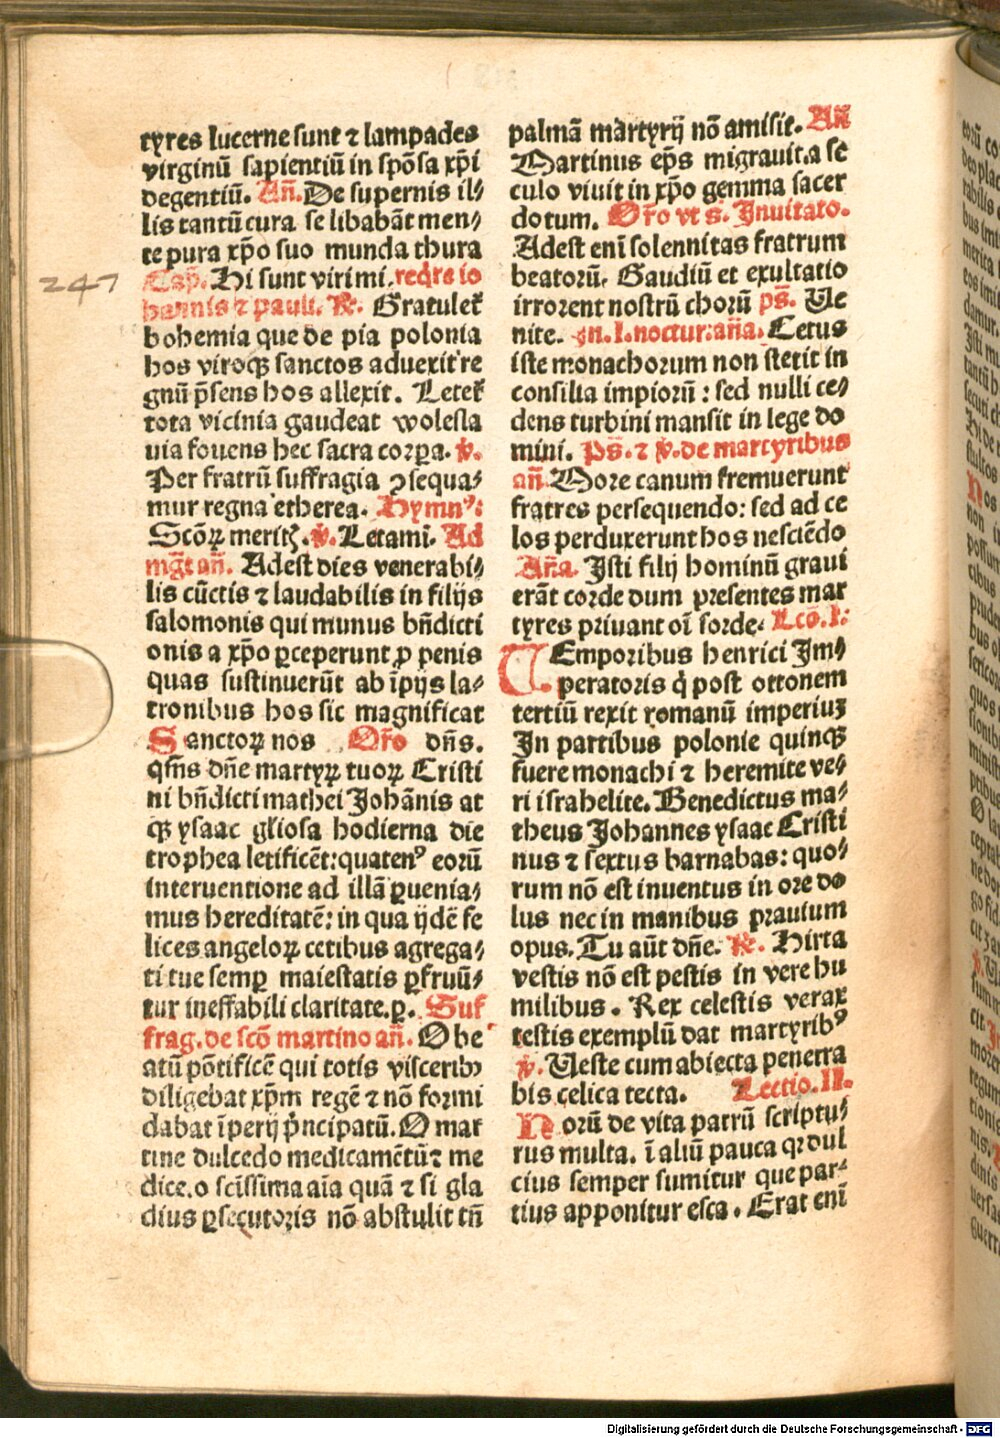 tyres lucerne sunt ⁊ lampades
virginū sapientiū in spōsa xp̄i
degentiū. An̄. De supernis il⸗
lis tantū cura se libabāt men⸗
te pura xp̄o suo munda thura
Cap̄. Hi sunt viri mi. reqre io
hannis ⁊ pauli. ℟. Gratulet᷑
bohemia que de pia polonia
hos viroqꝫ sanctos aduexit re
gnū p̄sens hos allexit. Letet᷑
tota vicinia gaudeat wolesla
uia fouens hec sacra corꝑa. ℣.
Per fratrū suffragia ꝯsequa⸗
mur regna etherea. Hymnꝰ:
Scōꝝ meritꝭ. ℣. Letami. Ad
mg̅t an̄. Adest dies venerabi⸗
lis cūctis ⁊ laudabilis in filijs
salomonis qui munus bn̄dicti
onis a xp̄o ꝑceperunt ꝓ penis
quas sustinuerūt ab īpijs la⸗
tronibus hos sic magnificat
Sanctoꝝ nos Or̄o dn̄s.
qs̄ns dn̄e martyꝝ tuoꝝ Cristi
ni bn̄dicti mathei Johānis at
qꝫ ysaac gl̄iosa hodierna die
trophea letificēt: quatenꝰ eorū
interuentione ad illā ꝑuenia⸗
mus hereditatē: in qua ijdē fe
lices angeloꝝ cetibus agrega⸗
ti tue semꝑ maiestatis ꝑfruū⸗
tur ineffabili claritate. ꝑ. Suf
frag. de scō martino an̄. O be
atū pōtificē qui totis visceribꝫ
diligebat xp̄m regē ⁊ nō formi
dabat īperij p̄ncipatū. O mar
tine dulcedo medicamētū ⁊ me
dice. o scīssima aīa quā ⁊ si gla
dius ꝑsecutoris nō abstulit tn̄
247
palmā martyrij nō amisit. An̄
Martinus ep̄s migrauit. a se
culo viuit in xp̄o gemma sacer
dotum. Or̄o vt s. Inuitato.
Adest enī solennitas fratrum
beatorū. Gaudiū et exultatio
irrorent nostrū chorū ps̄. Ue
nite. In. I. noctur: an̄a. Cetus
iste monachorum non stetit in
consilia impiorū: sed nulli ce⸗
dens turbini mansit in lege do
mini. Ps̄. ⁊ ℣. de martyribus
an̄. More canum fremuerunt
fratres persequendo: sed ad ce
los perduxerunt hos nesciēdo
An̄a. Isti filij hominū graui
erāt corde dum presentes mar
tyres priuant oī sorde. Lcō. I:
TEmporibus henrici Im⸗
peratoris q̇ post ottonem
tertiū rexit romanū imperiuꝫ
In partibus polonie quinqꝫ
fuere monachi ⁊ heremite ve⸗
ri israhelite. Benedictus ma⸗
theus Johannes ysaac Cristi
nus ⁊ sextus barnabas: quo⸗
rum nō est inuentus in ore do
lus nec in manibus prauium
opus. Tu aūt dn̄e. ℟. Hirta
vestis nō est pestis in vere hu
milibus. Rex celestis verax
testis exemplū dat martyribꝰ
℣. Ueste cum abiecta penetra
bis celica tecta. Lectio. II.
Horū de vita patrū scriptu⸗
rus multa. ī aliū pauca qr dul
cius semper sumitur que par⸗
tius apponitur esca. Erat enī
Digitalisierung gefördert durch die Deutsche Forschungsgemeinschaft - DFG